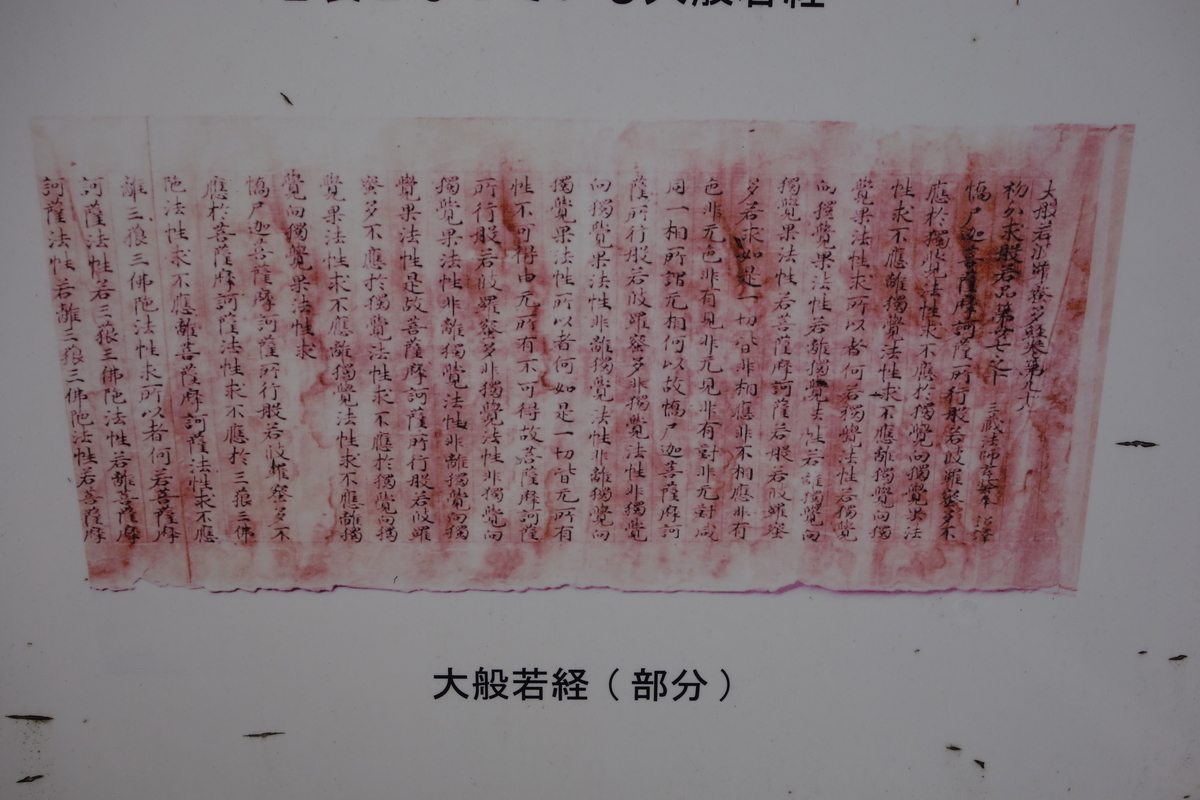 となっている大般若経
大般若波羅蜜多経巻第九十
初分求般若品第廿七之 三蔵法師玄奘奉 詔譯
憍尸迦菩薩摩訶薩所行般若波羅蜜多不
應於獨覺法性求不應於獨覺向獨覺果法
性求不應離獨覺法性求不應離獨覺向獨
覺果法性求所以者何若獨覺法性若獨覺
向獨覺果法性若離獨覺法性若離獨覺向
獨覺果法性若菩薩摩訶薩若般若波羅蜜
多若求如是一切皆非相應非不相應非有
色非无色非有見非无見非有對非无對咸
同一相所謂无相何以故憍尸迦菩薩摩訶
薩所行般若波羅蜜多非獨覺法性非獨覺
向獨覺果法性非離獨覺法性非離獨覺向
獨覺果法性所以者何如是一切皆无所有
性不可得由无所有不可得故菩薩摩訶薩
所行般若波羅蜜多非獨覺法性非獨覺向
獨覺果法性非離獨覺法性非離獨覺向獨
覺果法性是故菩薩摩訶薩所行般若波羅
蜜多不應於獨覺法性求不應於獨覺向獨
覺果法性求不應離獨覺法性求不應離獨
覺向獨覺果法性求
憍尸迦菩薩摩訶薩所行般若波羅蜜多不
應於菩薩摩訶薩法性求不應於三藐三佛
陀法性求不應離菩薩摩訶薩法性求不應
離三藐三佛陀法性求所以者何若菩薩摩
訶薩法性若三藐三佛陀法性若離菩薩摩
訶薩法性若離三藐三佛陀法性若菩薩摩
大般若経（部分）